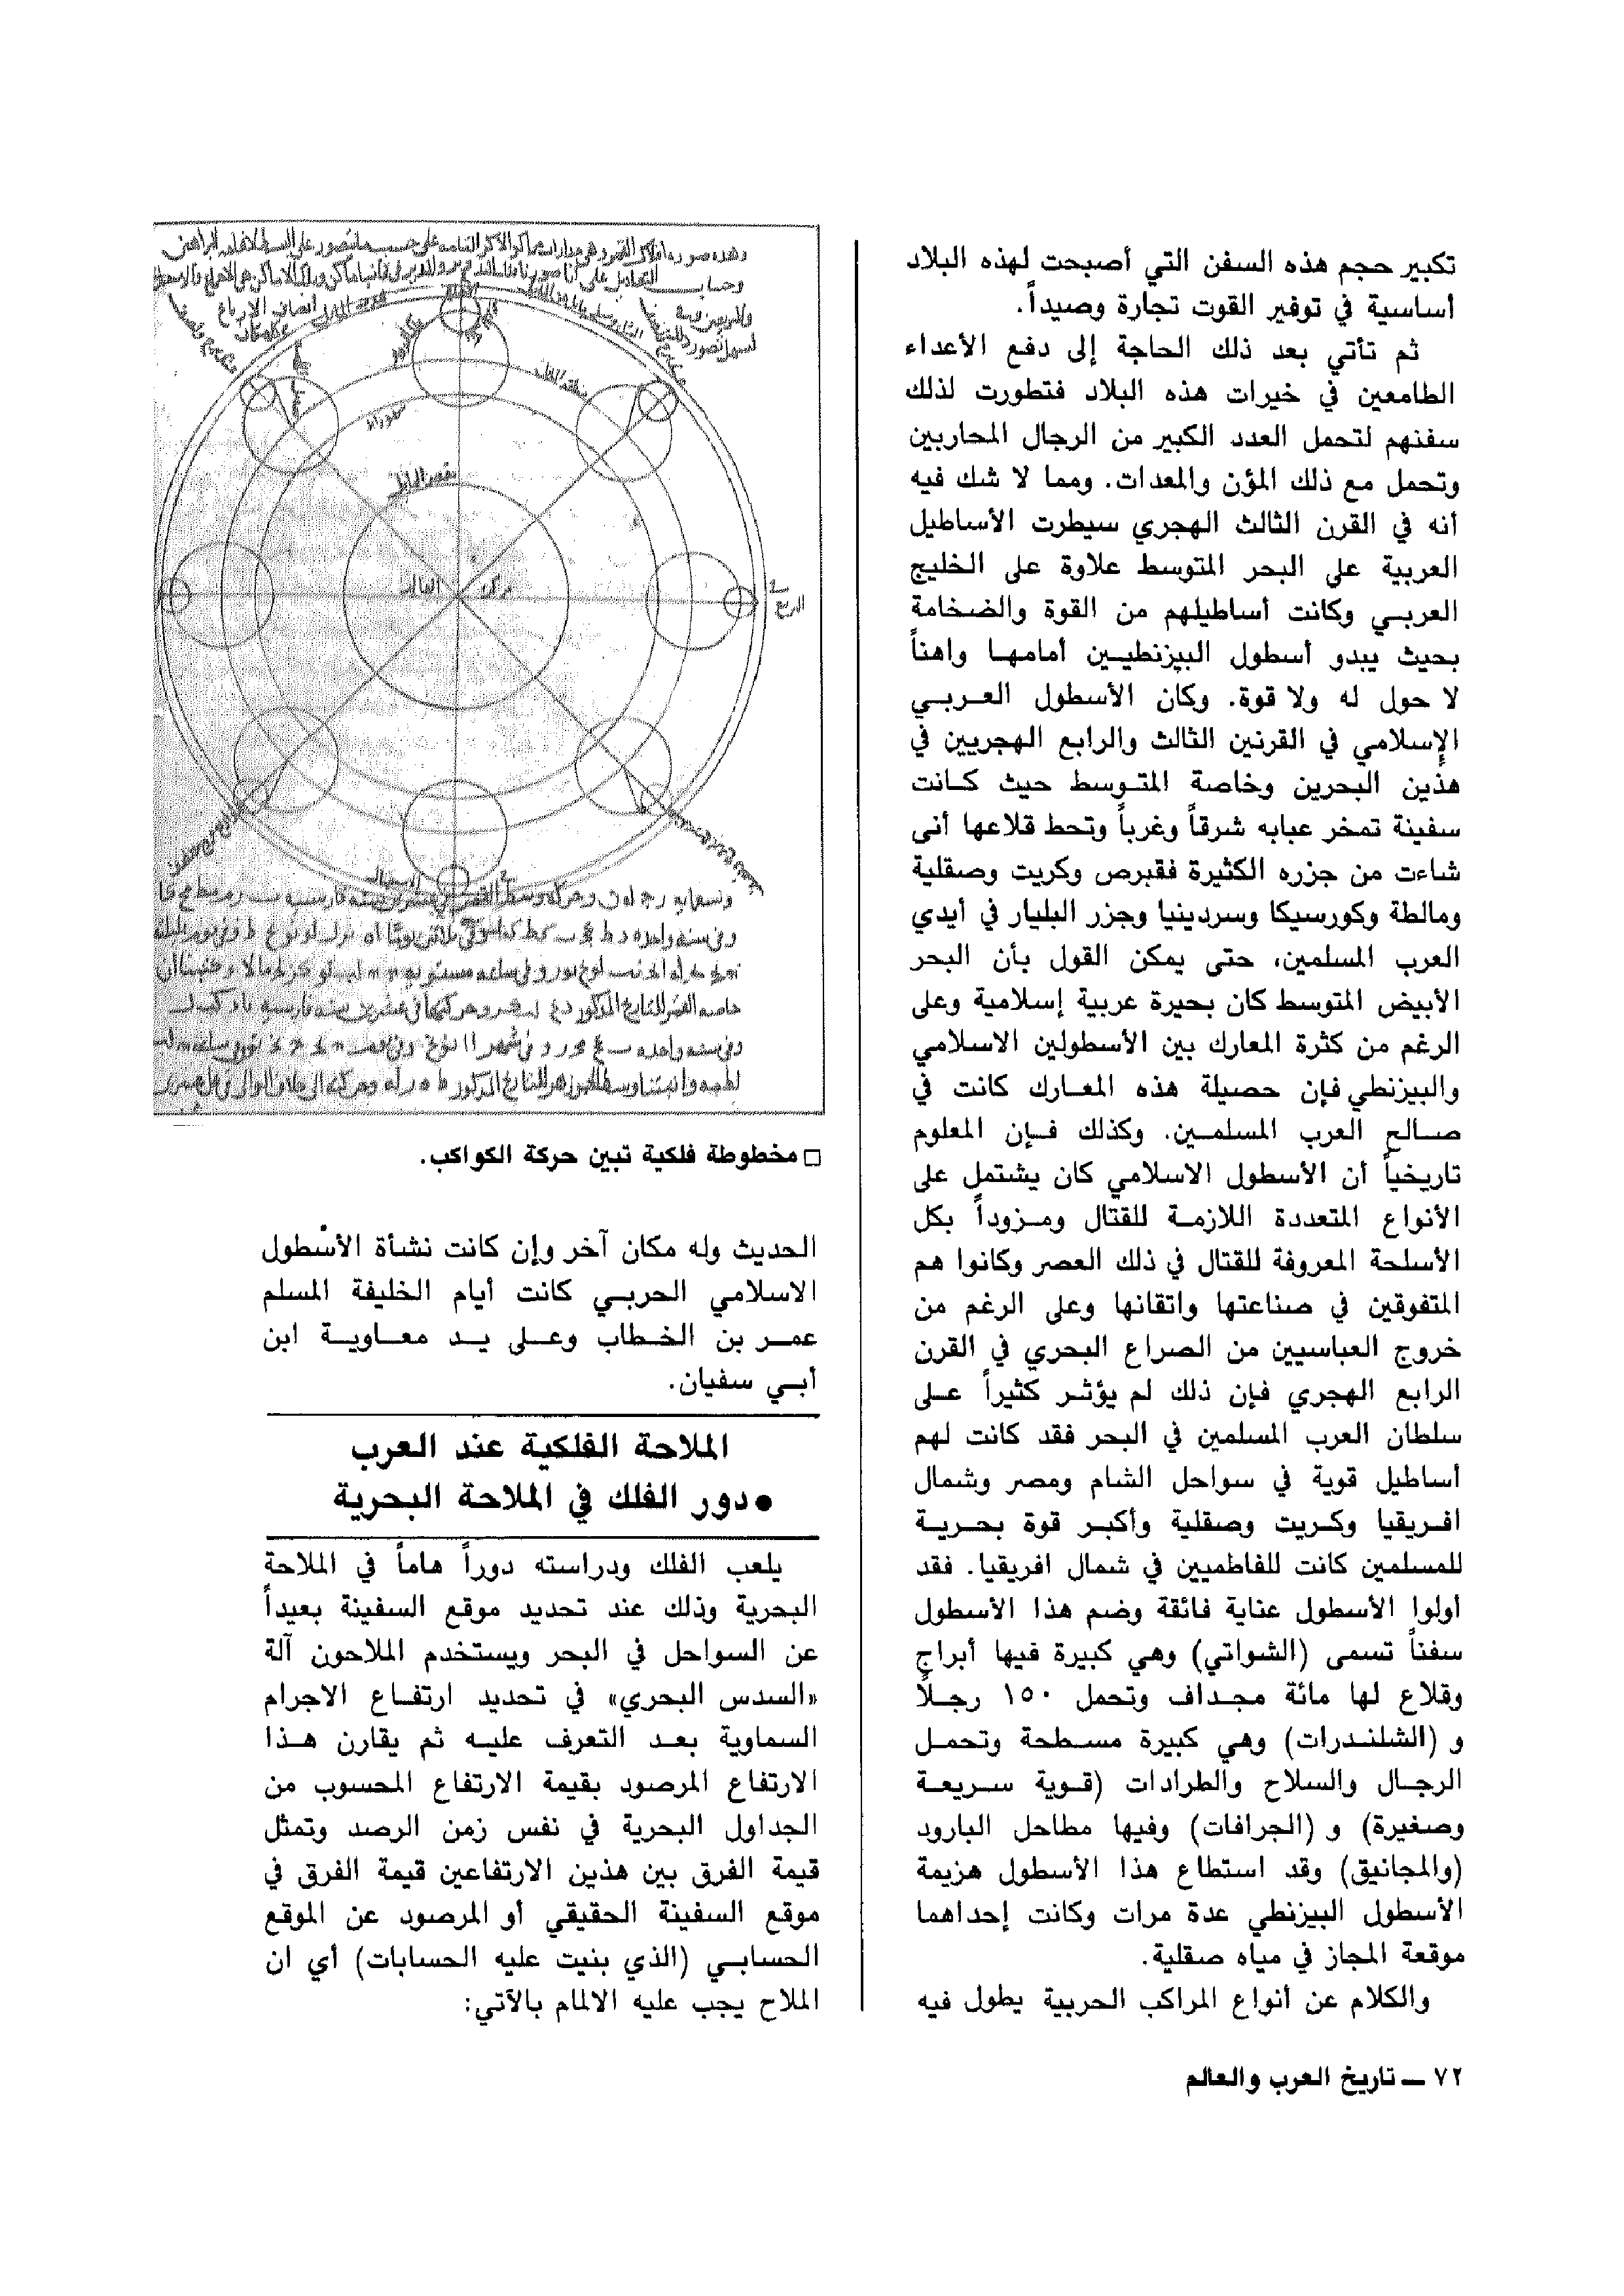 تكبير حجم هذه السفن التي أصبحت لهذه البلاد
أساسية في توفير القوت تجارة وصيداً.
ثم تأتي بعد ذلك الحاجة إلى دفع الأعداء
الطامعين في خيرات هذه البلاد فتطورت لذلك
سفنهم لتحمل العدد الكبير من الرجال المحاربين
وتحمل مع ذلك المؤن والمعدات. ومما لا شك فيه
أنه في القرن الثالث الهجري سيطرت الأساطيل
العربية على البحر المتوسط علاوة على الخليج
العربي وكانت أساطيلهم من القوة والضخامة
بحيث يبدو أسطول البيزنطيين أمامها واهناً
لا حول له ولا قوة. وكان الأسطول العربي
الإسلامي في القرنين الثالث والرابع الهجريين في
هذين البحرين وخاصة المتوسط حيث كانت
سفينة تمخر عبابه شرقاً وغرباً وتحط قلاعها أنى
شاءت من جزره الكثيرة فقبرص وكريت وصقلية
ومالطة وكورسيكا وسردينيا وجزر البليار في أيدي
العرب المسلمين، حتى يمكن القول بأن البحر
الأبيض المتوسط كان بحيرة عربية إسلامية وعلى
الرغم من كثرة المعارك بين الأسطولين الاسلامي
والبيزنطي فإن حصيلة هذه المعارك كانت في
صالح العرب المسلمين. وكذلك فإن المعلوم
تاريخياً أن الأسطول الاسلامي كان يشتمل على
الأنواع المتعددة اللازمة للقتال ومزوداً بكل
الأسلحة المعروفة للقتال في ذلك العصر وكانوا هم
المتفوقين في صناعتها واتقانها وعلى الرغم من
خروج العباسيين من الصراع البحري في القرن
الرابع الهجري فإن ذلك لم يؤثر كثيراً على
سلطان العرب المسلمين في البحر فقد كانت لهم
أساطيل قوية في سواحل الشام ومصر وشمال
افريقيا وكريت وصقلية وأكبر قوة بحرية
للمسلمين كانت للفاطميين في شمال افريقيا. فقد
أولوا الأسطول عناية فائقة وضم هذا الأسطول
سفناً تسمى (الشواتي) وهي كبيرة فيها أبراج
وقلاع لها مائة مجداف وتحمل ١٥٠ رجلاً
و (الشلندرات) وهي كبيرة مسطحة وتحمل
الرجال والسلاح والطرادات (قوية سريعة
وصغيرة) و (الجرافات) وفيها مطاحل البارود
(والمجانيق) وقد استطاع هذا الأسطول هزيمة
الأسطول البيزنطي عدة مرات وكانت إحداهما
موقعة المجاز في مياه صقلية.
والكلام عن أنواع المراكب الحربية يطول فيه
مركز العالم
□ مخطوطة فلكية تبين حركة الكواكب.
الحديث وله مكان آخر وإن كانت نشأة الأسطول
الاسلامي الحربي كانت أيام الخليفة المسلم
عمر بن الخطاب وعلى يد معاوية ابن
أبي سفيان.
الملاحة الفلكية عند العرب
• دور الفلك في الملاحة البحرية
يلعب الفلك ودراسته دوراً هاماً في الملاحة
البحرية وذلك عند تحديد موقع السفينة بعيداً
عن السواحل في البحر ويستخدم الملاحون آلة
«السدس البحري» في تحديد ارتفاع الاجرام
السماوية بعد التعرف عليه ثم يقارن هذا
الارتفاع المرصود بقيمة الارتفاع المحسوب من
الجداول البحرية في نفس زمن الرصد وتمثل
قيمة الفرق بين هذين الارتفاعين قيمة الفرق في
موقع السفينة الحقيقي أو المرصود عن الموقع
الحسابي (الذي بنيت عليه الحسابات) أي ان
الملاح يجب عليه الالمام بالآتي:
٧٢ — تاريخ العرب والعالم